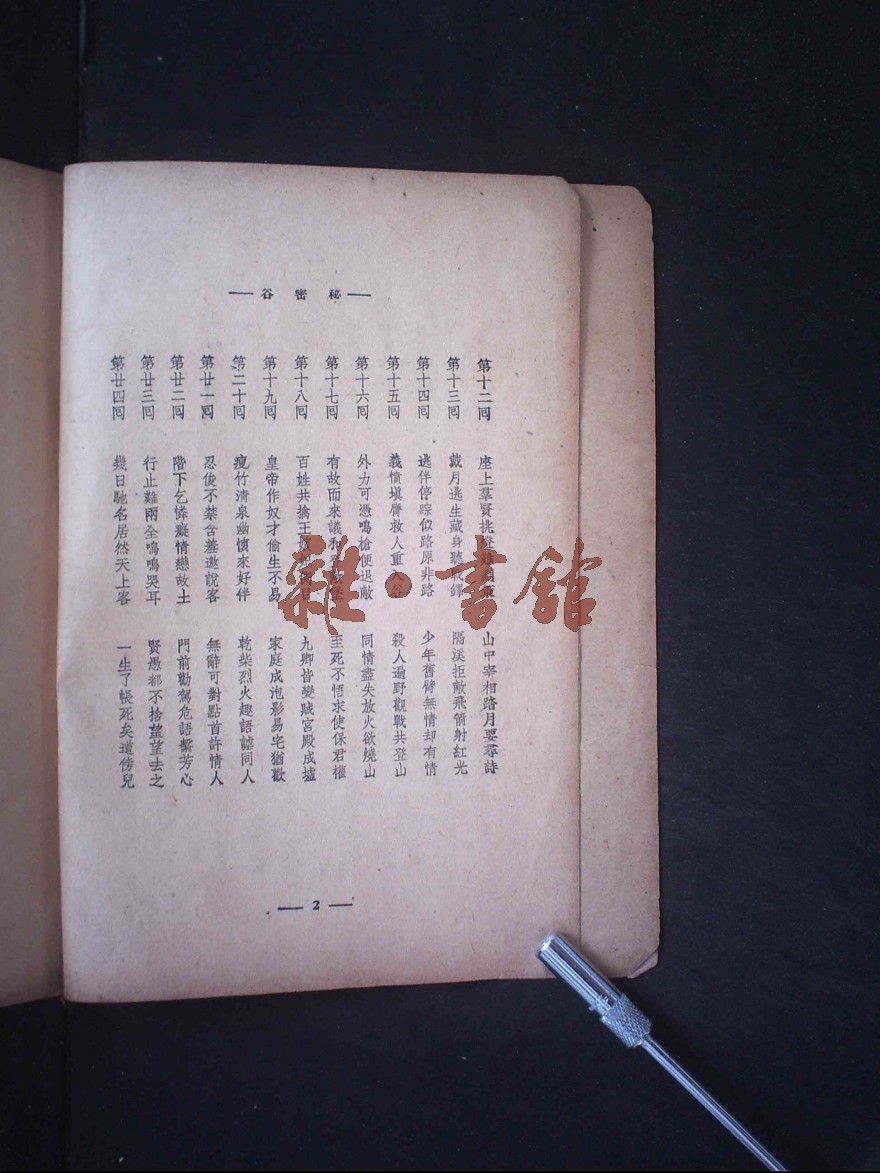 秘密谷
第十二回 座上羣賢挑燈 山中宰相踏月要尋詩
第十三回 戴月逃生藏身聽戰鐸 隔溪拒敵飛箭射紅光
第十四回 逃伴停踪似路原非路 少年舊臂無情却有情
第十五回 義憤塡膺救人重入谷 殺人遍野觀戰共登山
第十六回 外力可憑鳴槍便退敵 同情盡失放火欲燒山
第十七回 有故而來議和 至死不悟求使保君權
第十八回 百姓共擒王 九卿皆變賊宮殿成墟
第十九回 皇帝作奴才偷生不易 家庭成泡影易宅猶歡
第二十回 瘦竹清泉幽懷來好伴 乾柴烈火趣語謔同人
第廿一回 忍俊不禁含羞邀說客 無辭可對點首許情人
第廿二回 階下乞憐癡情戀故土 門前勸駕危語繫芳心
第廿三回 行止難兩全嗚嗚哭耳 賢愚都不捨望望去之
第廿四回 幾日馳名居然天上客 一生了帳死矣道傍兒
2
雜·書館